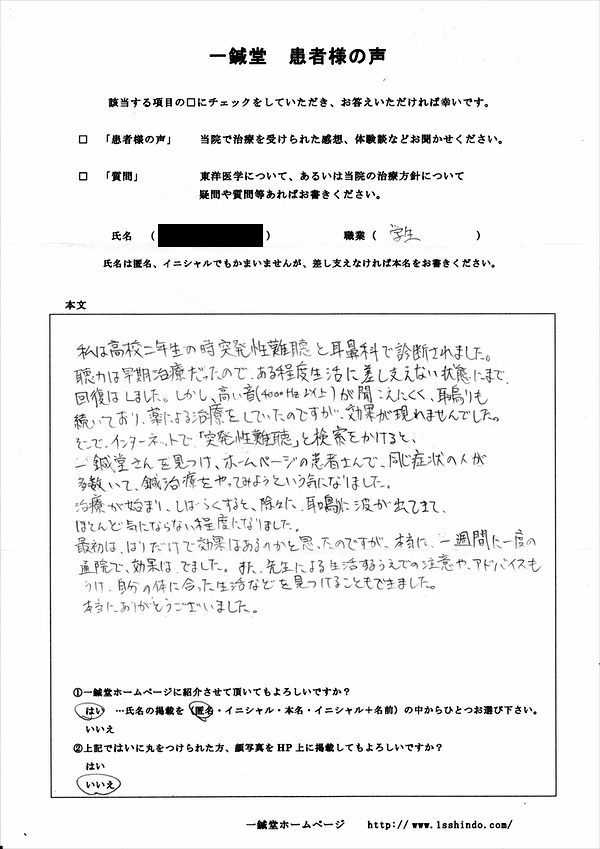 一鍼堂 患者様の声
該当する項目の□にチェックをしていただき、お答えいただければ幸いです。
□ 「患者様の声」 当院で治療を受けられた感想、体験談などお聞かせください。
□ 「質問」 東洋医学について、あるいは当院の治療方針について
疑問や質問等あればお書きください。
氏名 ( ) 職業 ( 学生 )
氏名は匿名、イニシャルでもかまいませんが、差し支えなければ本名をお書きください。
本文
私は高校二年生の時突発性難聴と耳鼻科で診断されました。
聴力は早期治療だったので、ある程度生活に差し支えない状態にまで、
回復はしました。しかし、高い音(4000Hz以上)が聞こえにくく、耳鳴りも
続いており、薬による治療をしていたのですが、効果が現れませんでした。
そこで、インターネットで「突発性難聴」と検索をかけると、
一鍼堂さんを見つけ、ホームページの患者さんで、同じ症状の人が
多数いて、鍼治療をやってみようという気になりました。
治療が始まり、しばらくすると、除々に、耳鳴に波が出てきて、
ほとんど気にならない程度になりました。
最初は、はりだけで効果はあるのかと思ったのですが、本当に、一週間に一度の
通院で、効果は、でました。また、先生による生活するうえでの注意や、アドバイスも
うけ、自分の体に合った生活などを見つけることもできました。
本当にありがとうございました。
①一鍼堂ホームページに紹介させて頂いてもよろしいですか?
はい …氏名の掲載を(匿名・イニシャル・本名・イニシャル+名前)の中からひとつお選び下さい。
いいえ
②上記ではいに丸をつけられた方、顔写真をHP上に掲載してもよろしいですか?
はい
いいえ
一鍼堂ホームページ http://www.1sshindo.com/